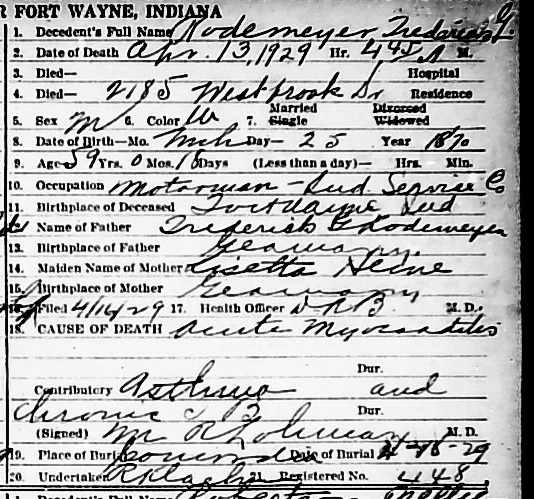 R FORT WAYNE, INDIANA
1. Decedent's Full Name Rodemeyer, Frederick G.
2. Date of Death Apr. 13, 1929 Hr. 445 A M.
3. Died— Hospital
4. Died— 2185 Westbrook Dr Residence
5. Sex M 6. Color W 7. Married Single Divorced Widowed
8. Date of Birth—Mo. Mch Day— 25 Year 1870
9. Age 59 Yrs. 0 Mos. 18 Days (Less than a day)— Hrs. Min.
10. Occupation Motorman - Ind Service Co
11. Birthplace of Deceased Fort Wayne Ind
12. Name of Father Frederick G Rodemeyer
13. Birthplace of Father Germany
14. Maiden Name of Mother Lisetta Heine
15. Birthplace of Mother Germany
16. Filed 4/16/29 17. Health Officer D R B M. D.
18. CAUSE OF DEATH Acute Myocarditis
Dur.
Contributory Asthma and
Chronic T B Dur.
(Signed) M. D.
19. Place of Burial Date of Burial 4-16-29
20. Undertaker 21. Registered No. 448
1. Decedent's Full Name